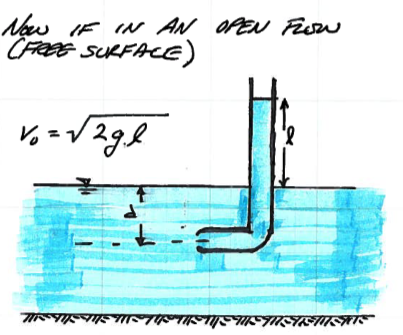 NOW IF IN AN OPEN FLOW
(FREE SURFACE)
V₀ = √2gl
l
d